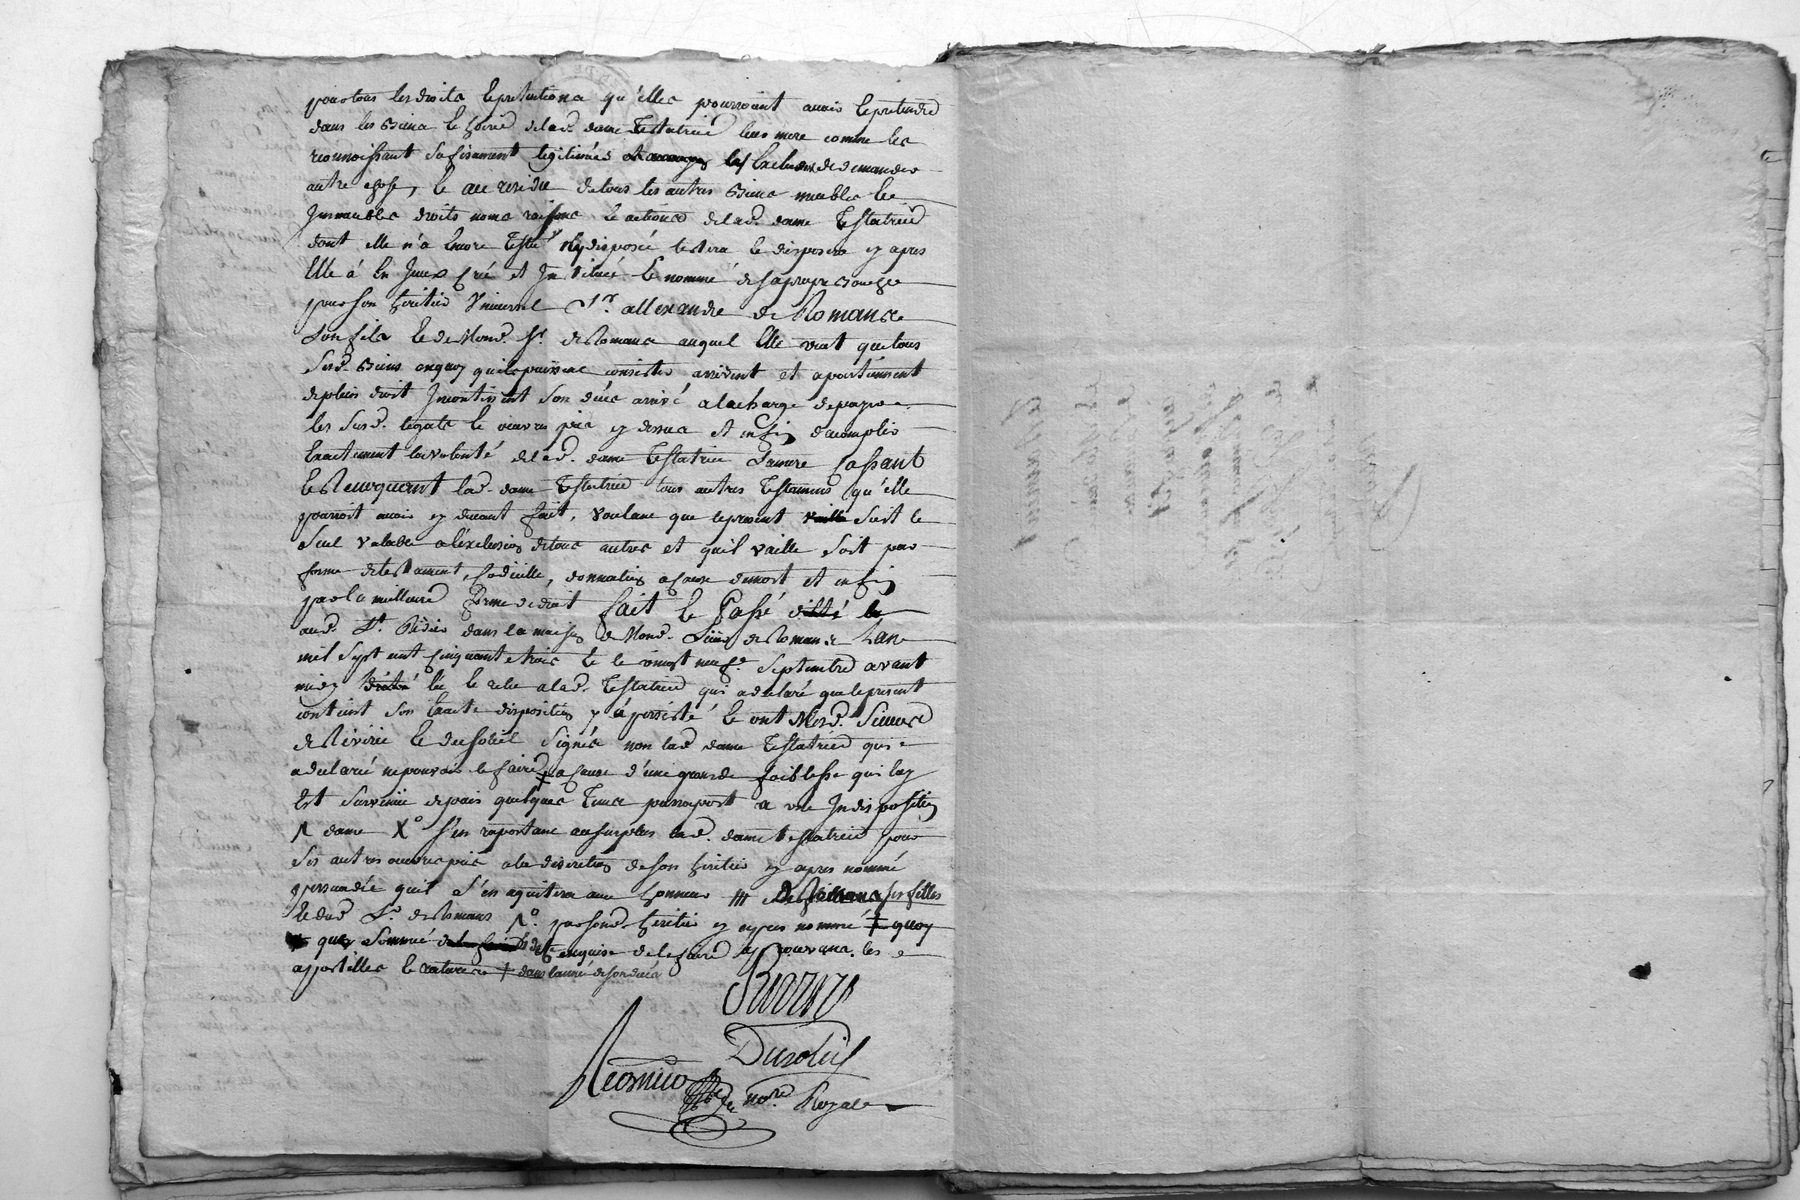 pour tous les droits & pretentions qu'elles pourroint avoir & pretendre
dans les Biens & hoirie de lad. dame Testatrice leur mere comme les
reconnoissant sufisament legitimées les Excluant de demander
autre chose, & au residu de tous les autres Biens meubles &
Immeubles droits noms raisons & actions de lad. dame Testatrice
dont elle n'a Encore Testé ny disposé testera & disposera cy apres
Elle á En Iceux créé et Institué & nommé de sa propre Bouche
pour son heritier Universel Sr. allexandre de Romans
Son fils & de Mond. Sr. de Romans auquel Elle veut que tous
Sesd. Biens en quoy quils puissent consister arrivent et apartiennent
de plein droit Incontinent Son décés arrivé a la charge de payer
les Susd. legats & œuvres pies cy dessus et enfin d'acomplir
Exactement la volonté de lad. dame Testatrice Cassant
& Revoquant lad. dame Testatrice tous autres Testaments qu'elle
pourroit avoir cy devant fait, voulant que le present vaille Soit le
Seul valable a l'exclusion de tous autres et quil vaille Soit par
forme de testament, Codicille, donnation a cause de mort et enfin
par la meilleure forme de droit fait & Passé
aud. St. Didier dans la maison de Mond. Sieur de Romans L'an
mil Sept cent Cinquante trois & le vingt neuf. Septembre avant
midy leu & relu a lad. Testatrice qui a declaré que le present
contient Son Exacte disposition y a persisté & ont Mesd. Sieurs
de Riverie & Dusoleil Signés non lad. dame Testatrice qui
a declaré ne pouvoir le faire a Cause d'une grande foiblesse qui luy
Est Survenue depuis quelques Tems par raport a une Indisposition
dame X° s'en raportant au surplus lad. dame testatrice pour
Ses autres œuvres pies a la discretion de son heritier cy apres nommé
persuadée quil S'en aquitera avec honneur /// ses filles
& dud. Sr. de Romans par sond. heritier cy apres nommé + quoy
que Sommé enquise de le faire aprouvant les
apostilles & ratures + dans l'année de son décés
Dusoleil
nore. Royale